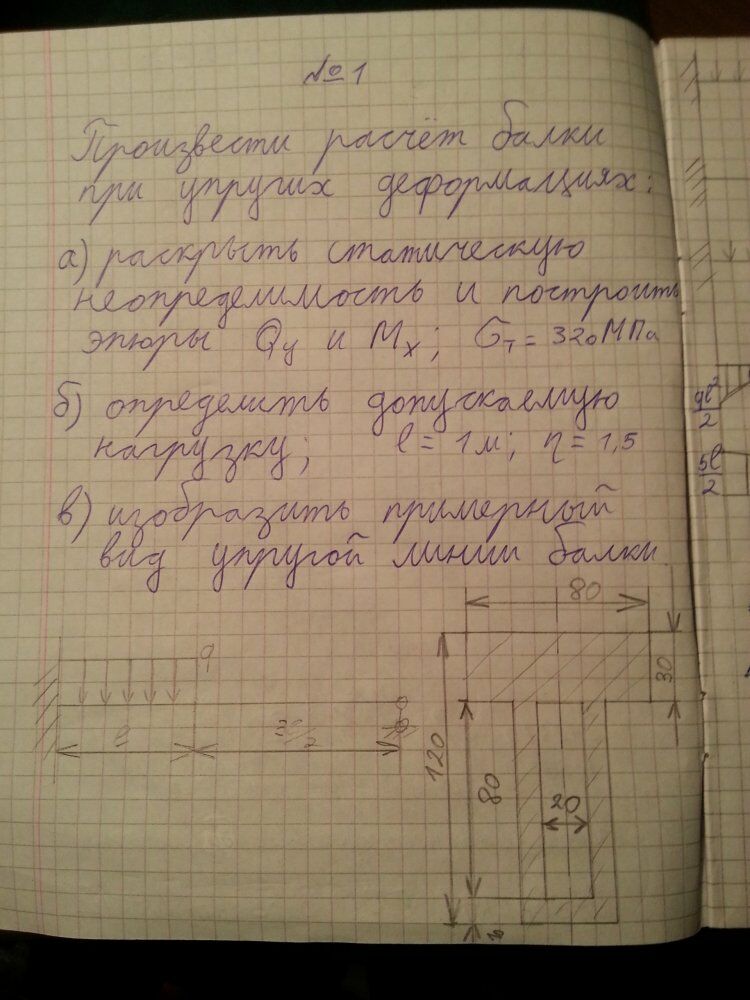 №1
Произвести расчёт балки
при упругих деформациях:
а) раскрыть статическую
неопределимость и построить
эпюры Qy и Mx; σт = 320 МПа
б) определить допускаемую
нагрузку; l = 1м; η = 1,5
в) изобразить примерный
вид упругой линии балки.
q
l
80
30
120
80
20
ql²/2
5l/2